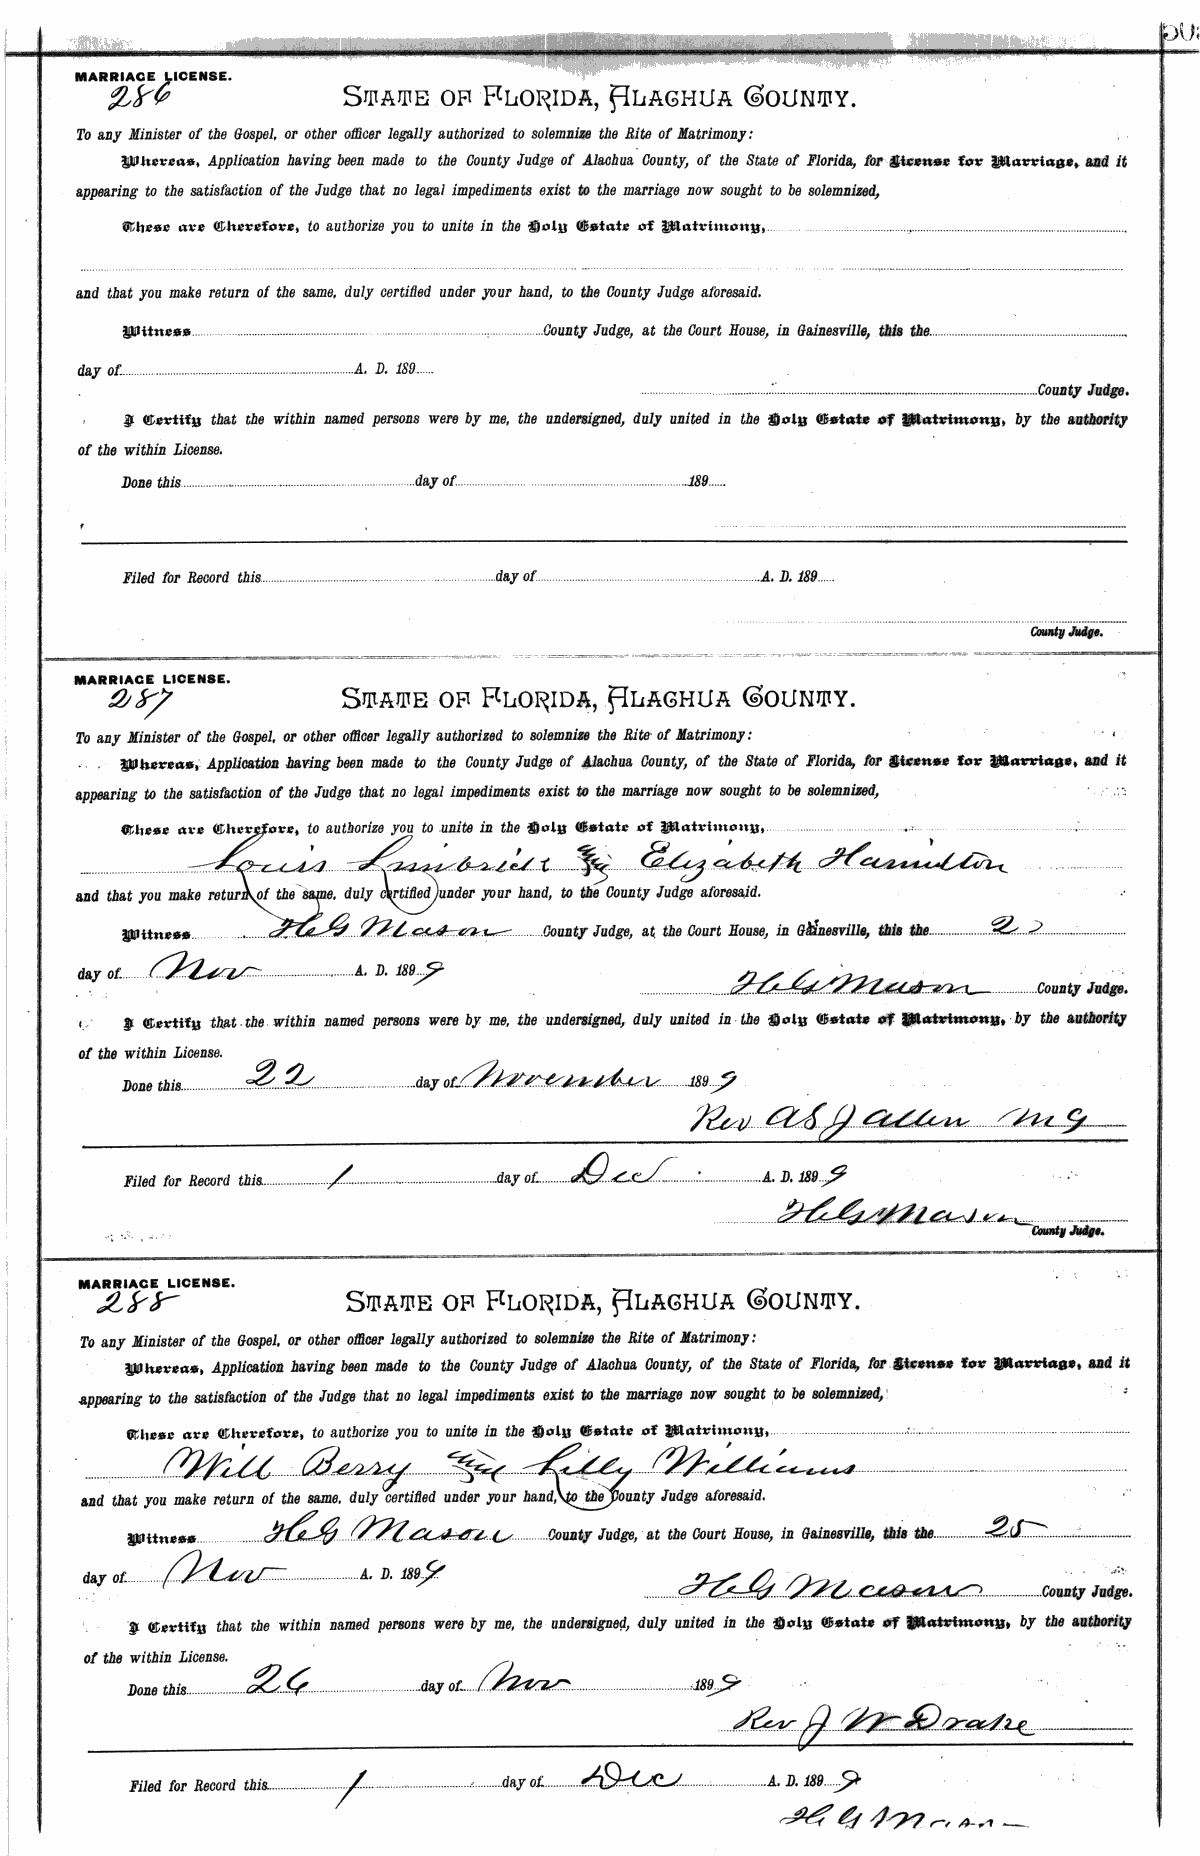 MARRIAGE LICENSE.
286
STATE OF FLORIDA, ALACHUA COUNTY.
To any Minister of the Gospel, or other officer legally authorized to solemnize the Rite of Matrimony:
Whereas, Application having been made to the County Judge of Alachua County, of the State of Florida, for License for Marriage, and it
appearing to the satisfaction of the Judge that no legal impediments exist to the marriage now sought to be solemnized,
These are Therefore, to authorize you to unite in the Holy Estate of Matrimony,
and that you make return of the same, duly certified under your hand, to the County Judge aforesaid.
Witness County Judge, at the Court House, in Gainesville, this the
day of A. D. 189
County Judge.
I Certify that the within named persons were by me, the undersigned, duly united in the Holy Estate of Matrimony, by the authority
of the within License.
Done this day of 189
Filed for Record this day of A. D. 189
County Judge.
MARRIAGE LICENSE.
287
STATE OF FLORIDA, ALACHUA COUNTY.
To any Minister of the Gospel, or other officer legally authorized to solemnize the Rite of Matrimony:
Whereas, Application having been made to the County Judge of Alachua County, of the State of Florida, for License for Marriage, and it
appearing to the satisfaction of the Judge that no legal impediments exist to the marriage now sought to be solemnized,
These are Therefore, to authorize you to unite in the Holy Estate of Matrimony,
Louis Elizabeth Hamilton
and that you make return of the same, duly certified under your hand, to the County Judge aforesaid.
Witness H G Mason County Judge, at the Court House, in Gainesville, this the
day of Nov A. D. 1899
H G Mason County Judge.
I Certify that the within named persons were by me, the undersigned, duly united in the Holy Estate of Matrimony, by the authority
of the within License.
Done this 22 day of November 1899
Rev A S J Allen M G
Filed for Record this 1 day of Dec A. D. 1899
H G Mason
County Judge.
MARRIAGE LICENSE.
288
STATE OF FLORIDA, ALACHUA COUNTY.
To any Minister of the Gospel, or other officer legally authorized to solemnize the Rite of Matrimony:
Whereas, Application having been made to the County Judge of Alachua County, of the State of Florida, for License for Marriage, and it
appearing to the satisfaction of the Judge that no legal impediments exist to the marriage now sought to be solemnized,
These are Therefore, to authorize you to unite in the Holy Estate of Matrimony,
Will Berry and Lilly Williams
and that you make return of the same, duly certified under your hand, to the County Judge aforesaid.
Witness H G Mason County Judge, at the Court House, in Gainesville, this the 25
day of Nov A. D. 1899
H G Mason County Judge.
I Certify that the within named persons were by me, the undersigned, duly united in the Holy Estate of Matrimony, by the authority
of the within License.
Done this 26 day of Nov 1899
Rev J W Drake
Filed for Record this 1 day of Dec A. D. 1899
H G Mason